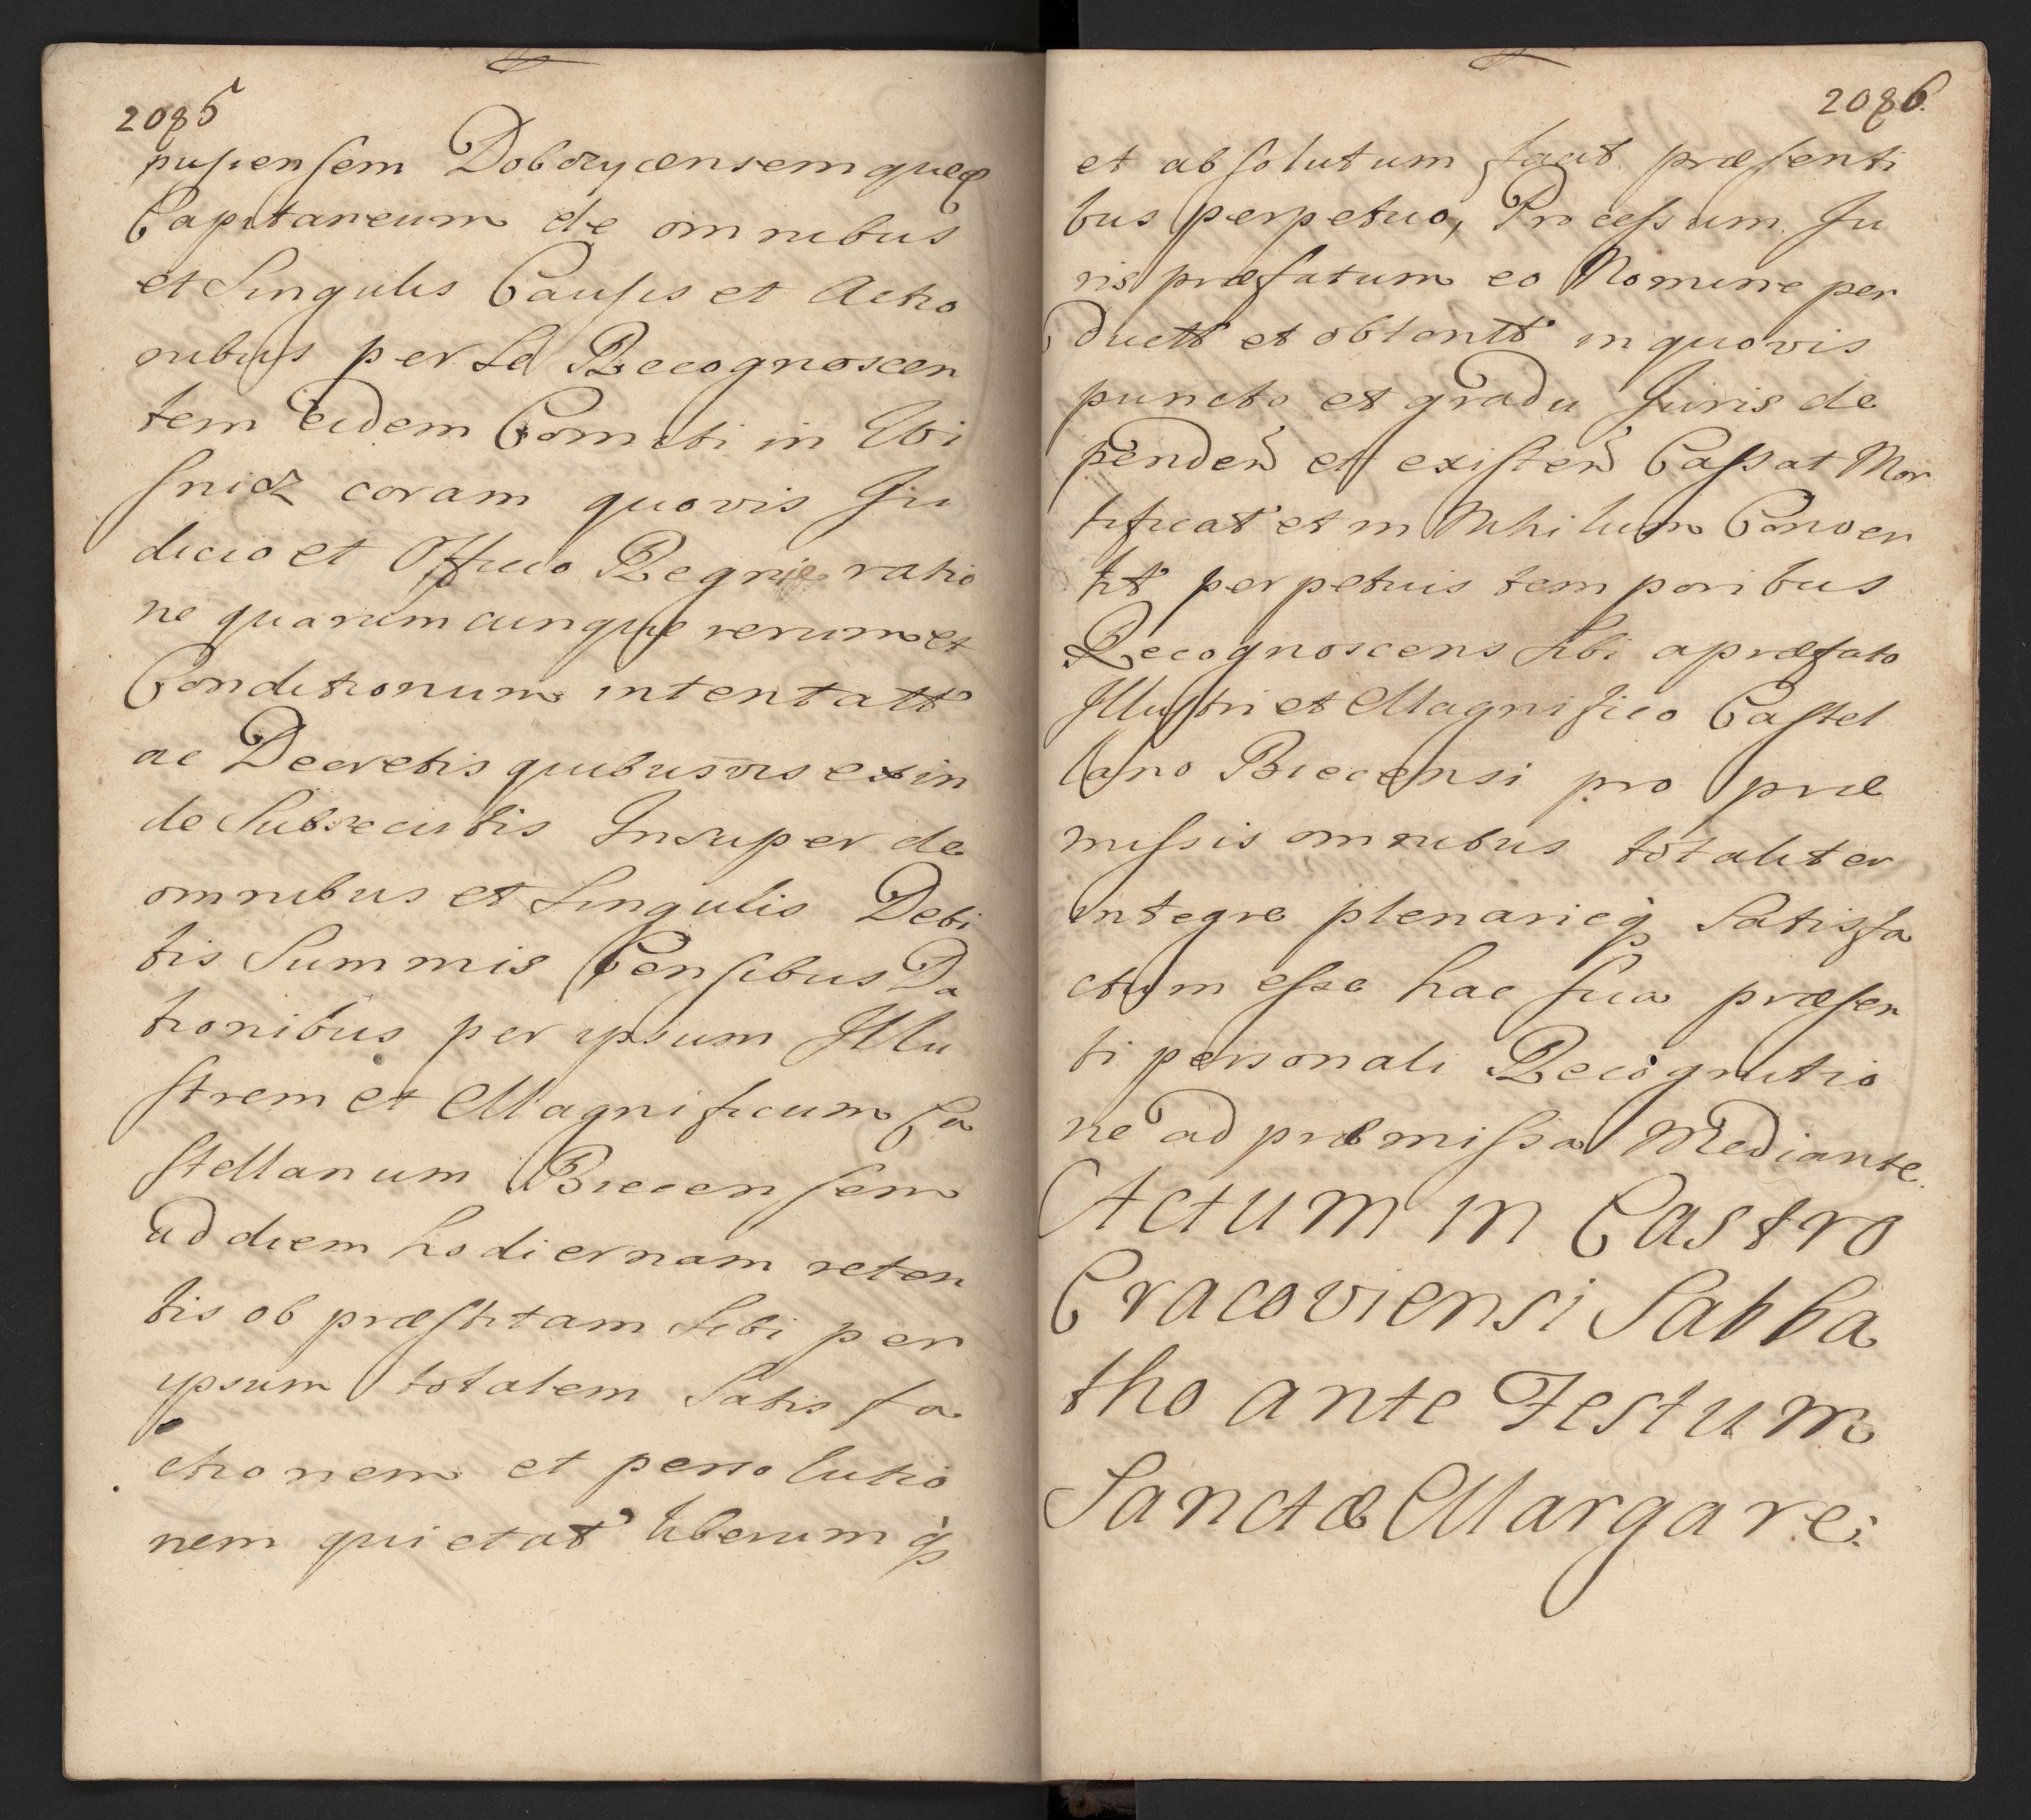 2085
pusiensem Dobczycensemqueq
Capitaneum de omnibus
et Singulis Causis et Actio
nibus per Se Recognoscen
tem eidem Comiti in Wi
snicz coram quovis Ju
dicio et Officio Regni ratio
ne quarumcunque rerum et
Conditionum intentatt
ac Decretis quibusvis exin
de Subsecutis Insuper de
omnibus et Singulis Debi
tis Summis Censibus Da
tionibus per ipsum Illu
strem et Magnificum Ca
stellanum Biecensem
ad diem hodiernam reten
tis ob præstitam Sibi per
ipsum totalem Satisfa
ctionem et persolutio
nem quietat liberumq
2086.
et absolutum facit præsenti
bus perpetuo, Processum Ju
ris præfatum eo Nomine per
duett et obtentt in quovis
puncto et gradu Juris de
penden et existen Cassat Mor
tificat et in Nihilum Conver
tit perpetuis temporibus
Recognoscens Sibi a præfato
Illustri et Magnifico Castel
lano Biecensi pro præ
missis omnibus totaliter
integre plenarieq Satisfa
ctum esse hac sua præsen
ti personali Recognitio
ne ad præmissa Mediante.
Actum in Castro
Cracoviensi Sabba
tho ante Festum
Sanctæ Margare: